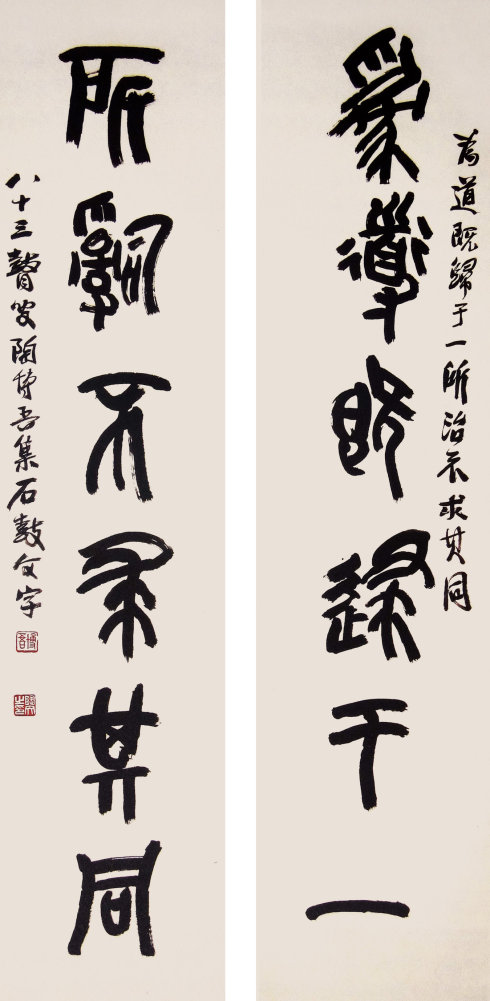 為道既歸于一
為道既歸于一所治不求其同
所治不求其同
八十三瞽叟陶博吾集石鼓文字
博吾